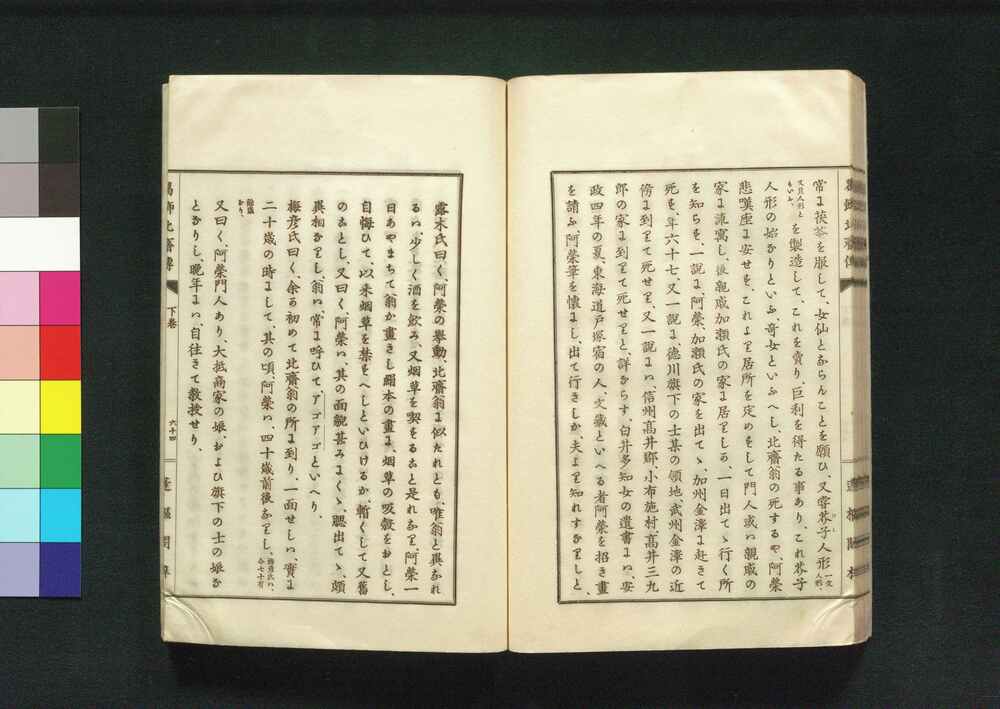 常に茯苓を服して、女仙とならんことを願ひ、又雷芥子人形一文人形、
又豆人形ともいふ、を製造して、これを賣り、巨利を得たる事あり、これ芥子
人形の始なりといふ、奇女といふへし、北齋翁の死するや、阿榮
悲嘆座に安せを、これより居所を定めをして門人或ハ親戚の
家に流寓し、後親戚加瀬氏の家に居をしる、一日出てゝ行く所
を知らを、一說に、阿榮、加瀬氏の家を出てゝ、加州金澤に赴きて
死を、年六十七、又一說に、德川旗下の士某の領地、武州金澤の近
傍に到りて死せり、又一說にハ、信州高井鄕、小布施村高井三九
郎の家に到りて死せりと、詳ならす、白井多知女の遺書にハ、安
政四年の夏、東海道戶塚宿の人、文藏といへる者阿榮を招き畫
を請ふ、阿榮筆を懷にし、出て行きしか、夫より知れすなりしと、
露木氏曰く、阿榮の擧動、北齋翁に似たれとも、唯翁と異なれ
るハ、少しく酒を飮み、又烟草を喫をること是れなり、阿榮一
日あやまちて、翁か畫きし絹本の畫に、烟草の吸殼をおとし、
自悔ひて、以來烟草を禁をへしといひけるか、暫くして又舊
のことし、又曰く、阿榮ハ、其の面貌甚みにくゝ、腮出てゝ、頗
異相なりし、翁ハ、常に呼ひて、アゴアゴといへり、
梅彥氏曰く、余の初めて北齋翁の所に到り、一面せしハ、實に
二十歲の時にして、其の頃、阿榮ハ、四十歲前後なりし、梅彥氏ハ、今七十有
餘歲なり、
又曰く、阿榮門人あり、大抵商家の娘、および旗下の士の娘な
となりし、晚年にハ、自往きて敎授せり、
飾北齋傳
下卷
六十四